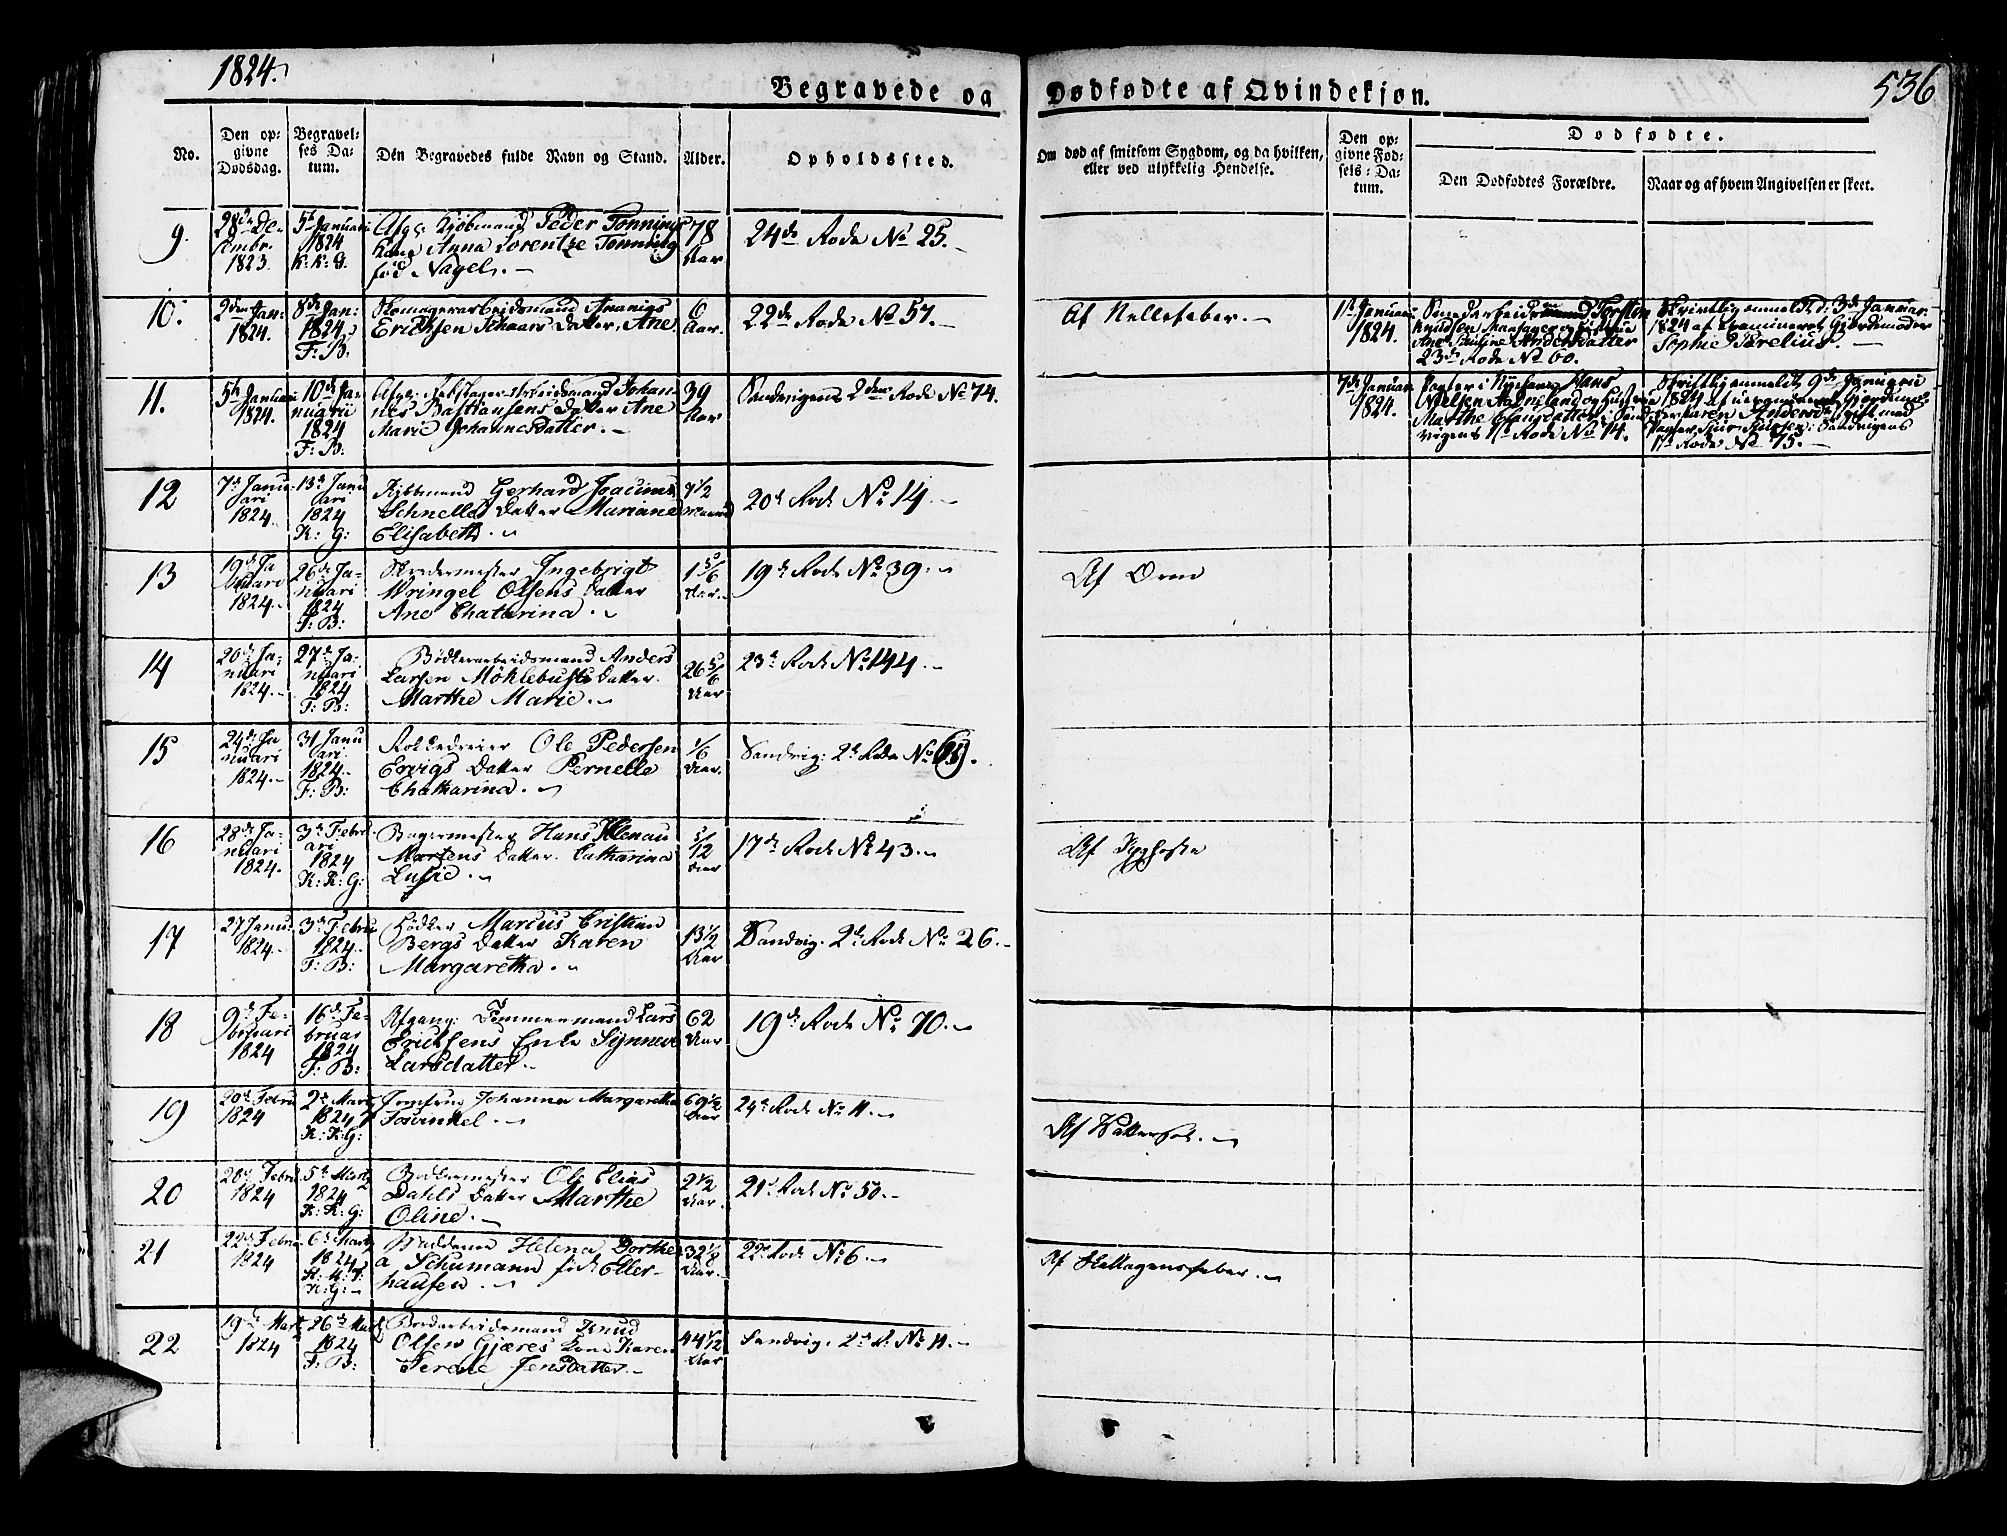 1824.
Begravede og Dødfødte af Qvindekjøn.
536
No.
Den opgivne Dødsdag.
Begravelses Datum.
Den Begravedes fulde Navn og Stand.
Alder.
Opholdssted.
Om død af smitsom Sygdom, og da hvilken, eller ved ulykkelig Hendelse.
Den opgivne Fødsels-Datum.
Dødfødte.
Den Dødfødtes Forældre.
Naar og af hvem Angivelsen er skeet.
9.
28de December 1823.
5te Januari 1824 K: K: G.
Afg: Kjøbmand Peder Tonnings
Kone Anna Lorentze Tonning
fød Nagel.
78 Aar
24de Rode No 25.
10.
2den Jan: 1824.
8de Jan: 1824 F: B:
Skomagerarbeidsmand Ananias
Erichsen Schaars Datter, Ane
6 Aar.
22de Rode No 57.
Af Nellefeber.
1ste Januari 1824.
Torsten
Knudsen
Ane Pauline Andersdatter
23de Rode No 60.
Skriftlig anmeldt d: 3de Januar
1824 af examineret Gjordemoder
Sophie
11.
5te Januari 1824.
10de Januari 1824 F: B:
Afg: Arbeidsmand Johannes
Bastiansens Datter Ane
Marie Johannesdatter.
39 Aar
Sandvigens 2den Rode No 74.
7de Januari 1824.
Hans
Nielsen
Marthe Clausdatter i Sandvigens
1ste Rode No 14.
Skriftlig anmeldt 9de Januarii
1824 af Gjordemoder
Karen Andersd: gift med
Sandvigens
1ste Rode No 75.
12
7de Januari 1824.
13de Januari 1824 K: G:
Kjøbmand Gerhard Joacims
Schnelles Datter Mariane
Elisabeth.
7½ Maaned
20de Rode No 14.
13
19de Januari 1824.
26de Januari 1824 F: B:
Skredermester Ingebrigt
Wringel Olsens Datter
Ane Chatarina.
1 5/6 Aar.
19de Rode No 39.
Af Orm
14
20de Januari 1824.
27de Januari 1824 F: B:
Bødkerarbeidsmand Anders
Larsen Möhlebusts Datter
Marthe Marie.
26 5/6 Aar
23de Rode No 144.
15
24de Januari 1824.
31 Januari 1824. F: B:
Rokkedreier Ole Pedersen
Ervigs Datter Pernelle
Chatharina.
1/6 Aar.
Sandvig: 2de Rode No 69.
16
28de Januari 1824.
3de Februari 1824 K: K: G:
Bagermester Hans Klenau
Martens Datter Catharina
Lusie.
5/12 Aar
17de Rode No 43.
Af Kighoste
17
27 Janu: 1824.
3de Febru 1824. F: B:
Bödker Marcus Cristian
Bergs Datter Karen
Margaretha.
13½ Aar
Sandvig. 2de Rode No 26.
18
9de Februari 1824
16de Februar 1824 F: B:
Afgang: Tømmermand Lars
Erichsens Enke Synneve
Larsdatter.
62 Aar
19de Rode No 70.
19
20de Febru 1824
2de Marts 1824 K: K: G:
Jomfrue Johanna Margaretha
69½ Aar
24de Rode No 11.
Af Vattersot.
20
20de Febru 1824
5te Martz 1824 K: K: G:
Bødkermester Ole Elias
Dahls Datter Marthe
Oline.
2½ Aar.
21de Rode No 50.
21
22de Febru 1824
6te Martz 1824
Maddame Helena Dorthea
Schumann født Ellerhausen.
32½ Aar.
22de Rode No 6.
22
19de Martz 1824
26de Martz 1824 F: B:
Bordarbeidsmand Knud
Olsen Gjæres Kone Karen
Serene Jensdatter.
44½ Aar
Sandvig. 2de R: No 11.